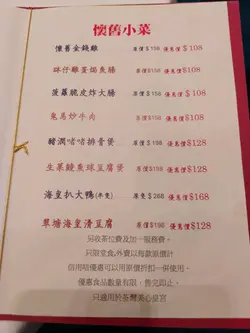 懷舊小菜
懷舊金錢雞 原價$158 優惠價$108
砵仔雞蛋焗魚腸 原價$158 優惠價$108
菠蘿脆皮炸大腸 原價$158 優惠價$108
鬼馬炒牛肉 原價$158 優惠價$108
豬潤啫啫排骨煲 原價$168 優惠價$128
生菜鯪魚球豆腐煲 原價$168 優惠價$128
海皇扒大鴨(半隻) 原隻$268 優惠價$168
翠塘海皇清豆腐 原價$198 優惠價$128
另收茶位費及加一服務費。
只限堂食,外賣以每款原價計
信用咭優惠可以用原價折扣一併使用。
優惠食品數量有限，售完即止。
只適用於荃灣美心皇宮